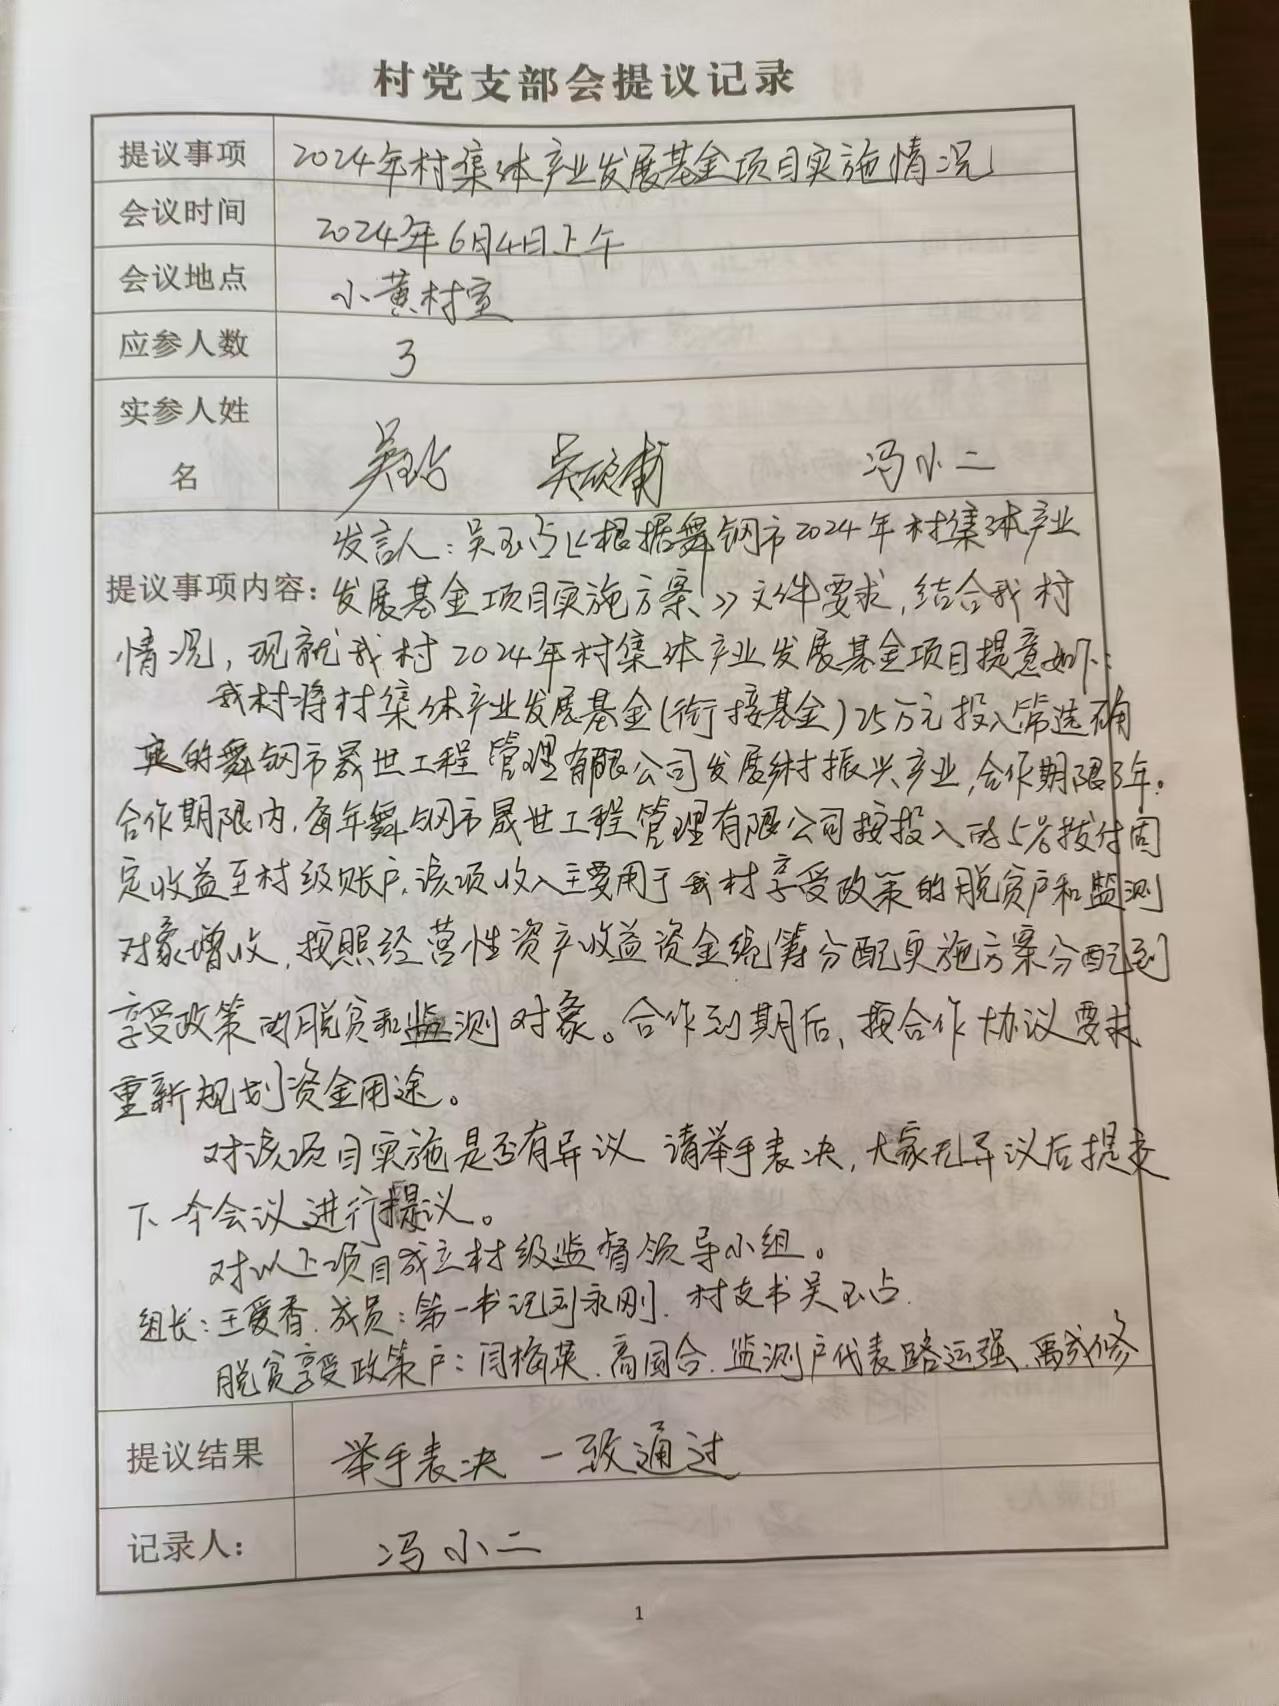 村党支部会提议记录
提议事项 2024年村集体产业发展基金项目实施情况
会议时间 2024年6月4日上午
会议地点 小黄村室
应参人数 3
实参人姓名 吴玉占 吴硕甫 冯小二
发言人：吴玉占《根据舞钢市2024年村集体产业
提议事项内容：发展基金项目实施方案》文件要求，结合我村
情况，现就我村2024年村集体产业发展基金项目提意如下：
我村将村集体产业发展基金(衔接基金)25万元投入筛选确
定的舞钢市晟世工程管理有限公司发展乡村振兴产业，合作期限3年。
合作期限内，每年舞钢市晟世工程管理有限公司按投入的5%拨付固
定收益至村级账户，该项收入主要用于我村享受政策的脱贫户和监测
对象增收，按照经营性资产收益资金统筹分配实施方案分配到
享受政策的脱贫和监测对象。合作到期后，按合作协议要求
重新规划资金用途。
对该项目实施是否有异议 请举手表决，大家无异议后提交
下个会议进行提议。
对以上项目成立村级监督领导小组。
组长：王爱香.成员：第一书记刘永刚.村支书吴玉占.
脱贫享受政策户：闫梅英.高国合.监测户代表路运强.禹成修
提议结果 举手表决 一致通过
记录人： 冯小二
1